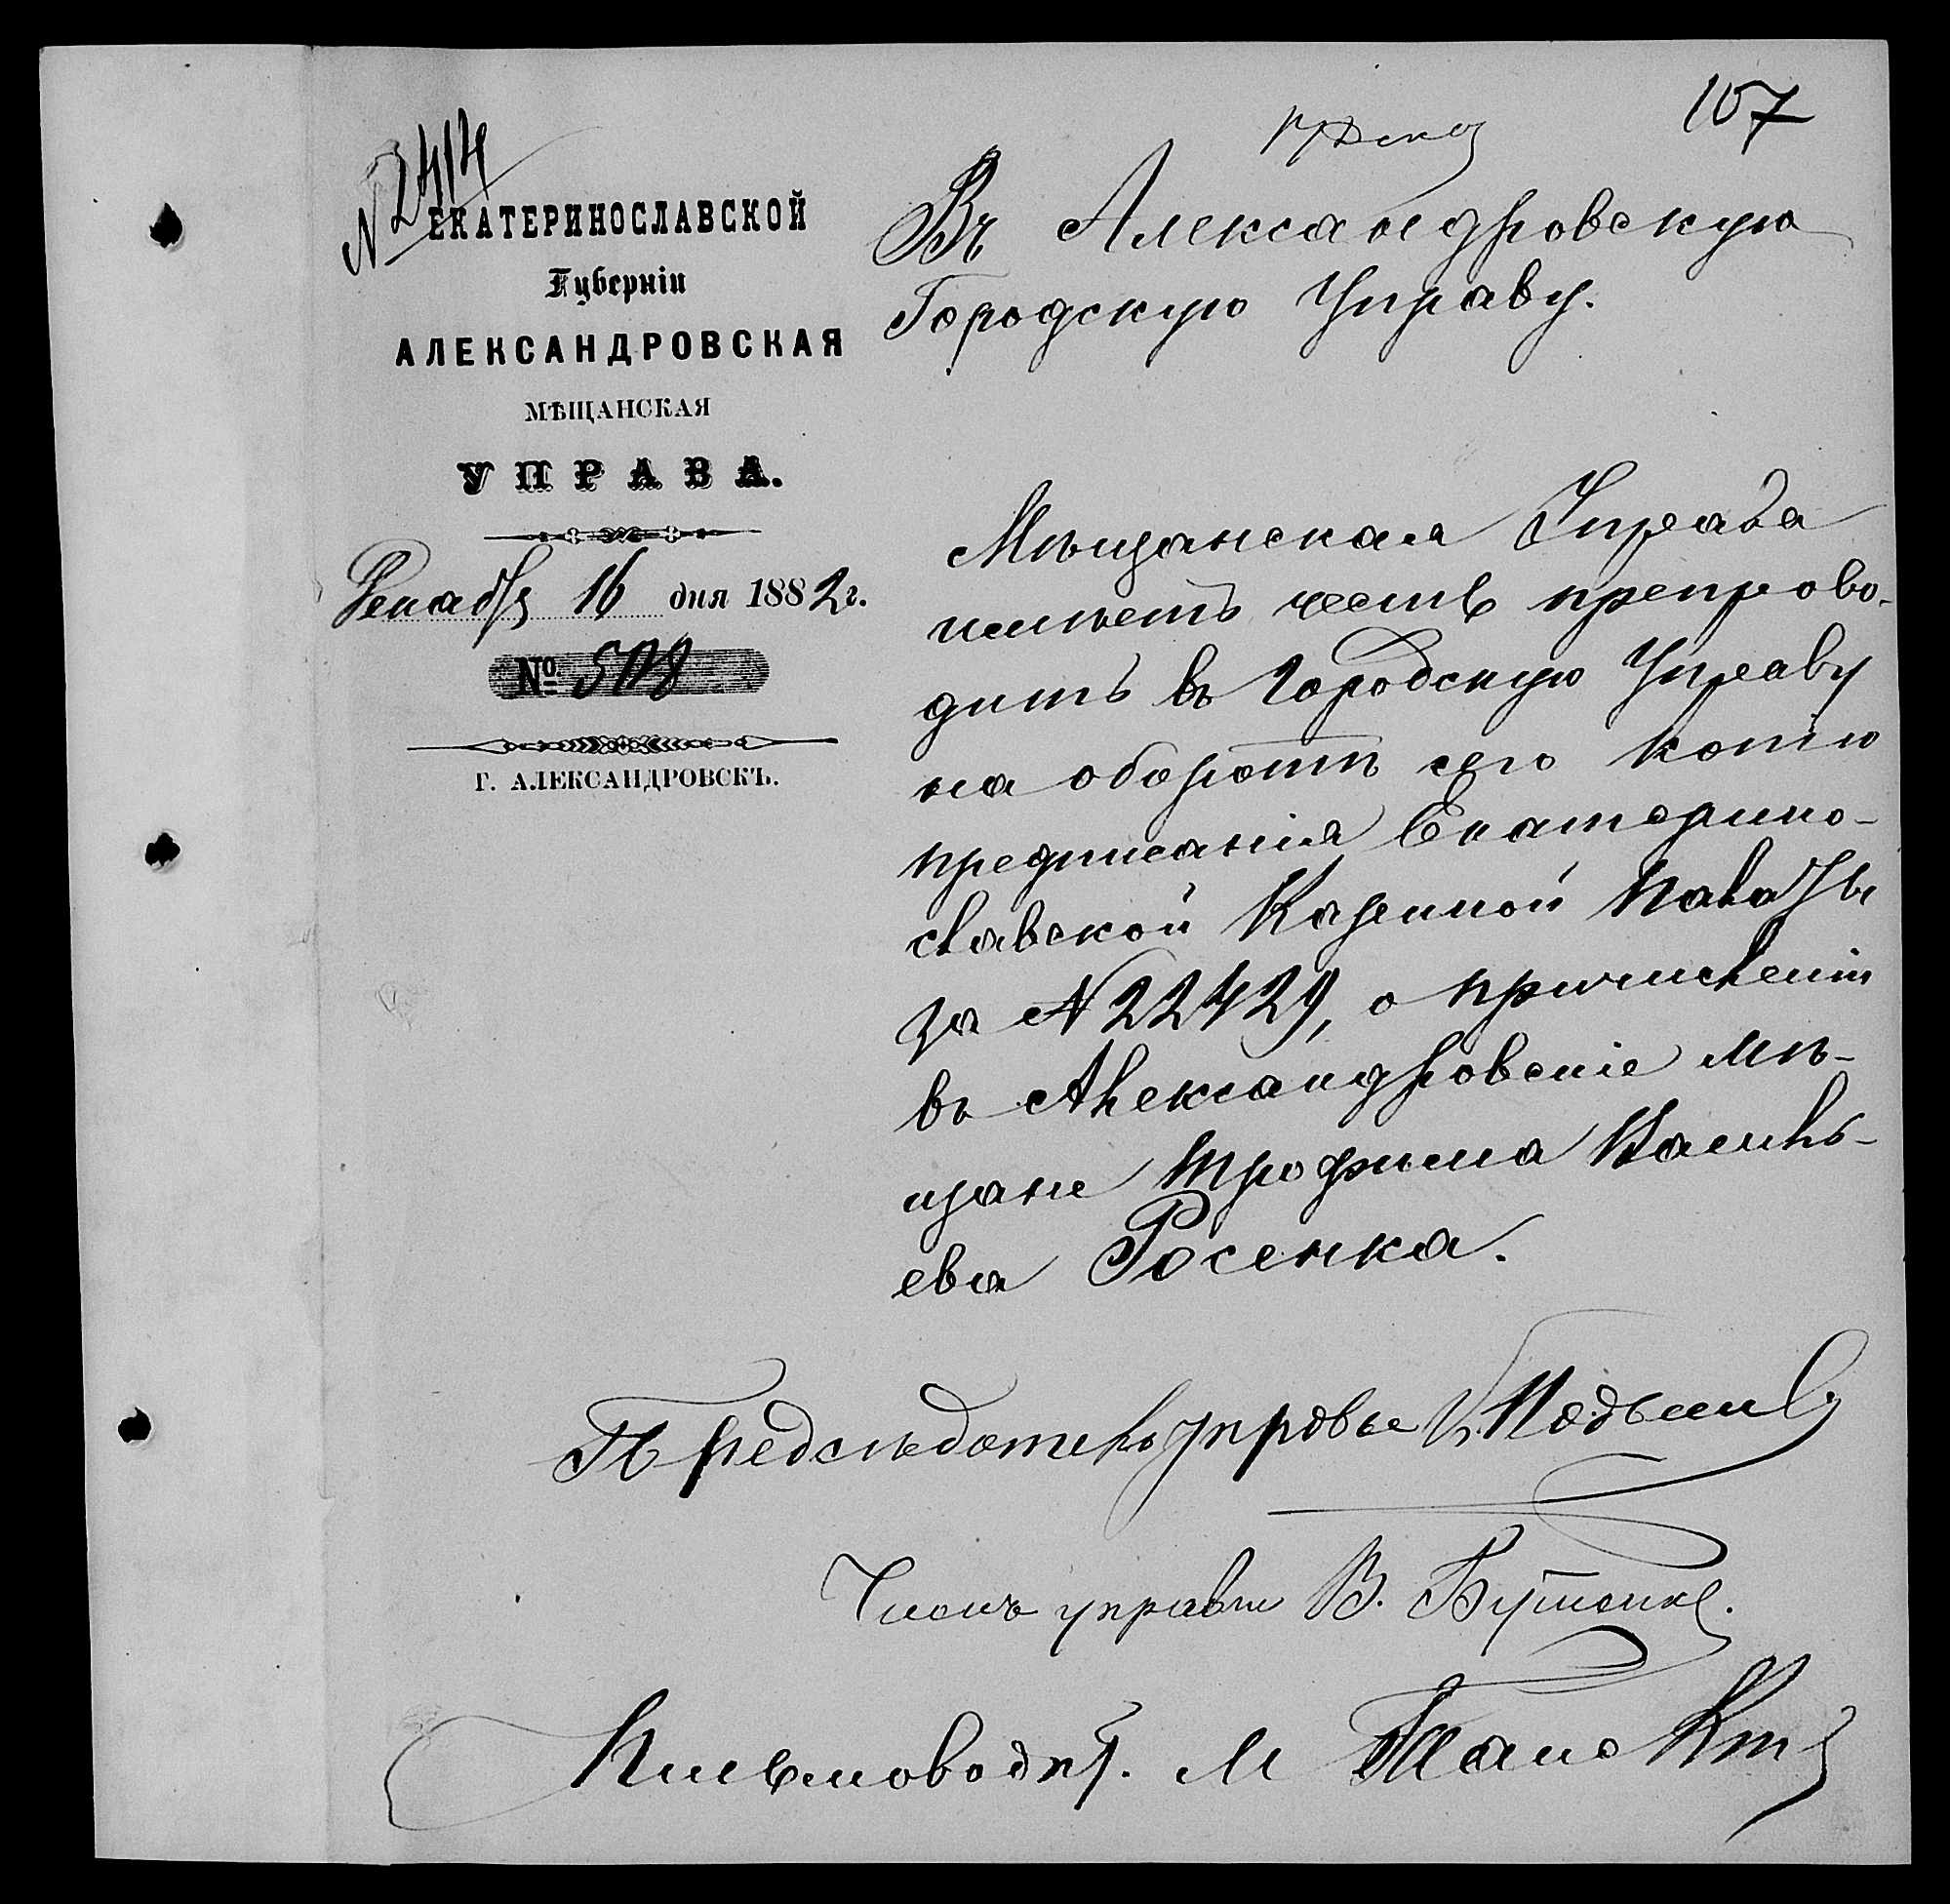 107
17 Дек
№ 2414
ЕКАТЕРИНОСЛАВСКОЙ
Губерніи
АЛЕКСАНДРОВСКАЯ
МѢЩАНСКАЯ
УПРАВА.
Декабря 16 дня 1882 г.
№ 508
Г. АЛЕКСАНДРОВСКЪ.
Въ Александровскую
Городскую Управу.
Мѣщанская Управа
имѣетъ честь препрово-
дить въ Городскую Управу
на оборотѣ сего копію
предписанія Екатерино-
славской Казенной Палаты
за № 22429, о причисленіи
въ Александровскіе мѣ-
щане Трофима Василь-
ева Росенка.
Предсѣдатель управы
Членъ управы В. Бутенко.
Письмовод. М